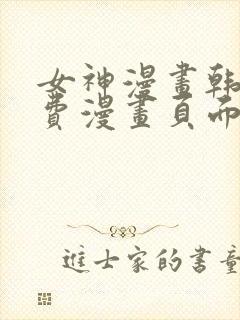 女神漫畫韩
費漫畫頁而
進士家的書童